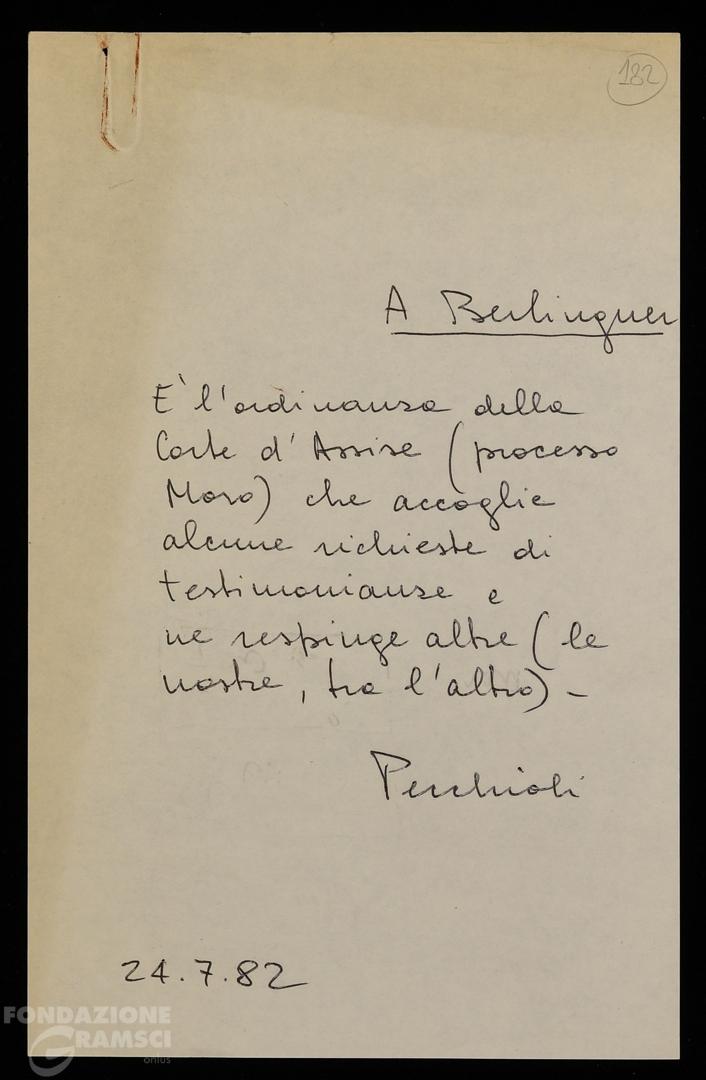 182
A Berlinguer
E' l'ordinanza della
Corte d'Assise (processo
Moro) che accoglie
alcune richieste di
testimonianze e
ne respinge altre (le
nostre, tra l'altro) -
Pecchioli
24.7.82
FONDAZIONE
GRAMSCI
onlus